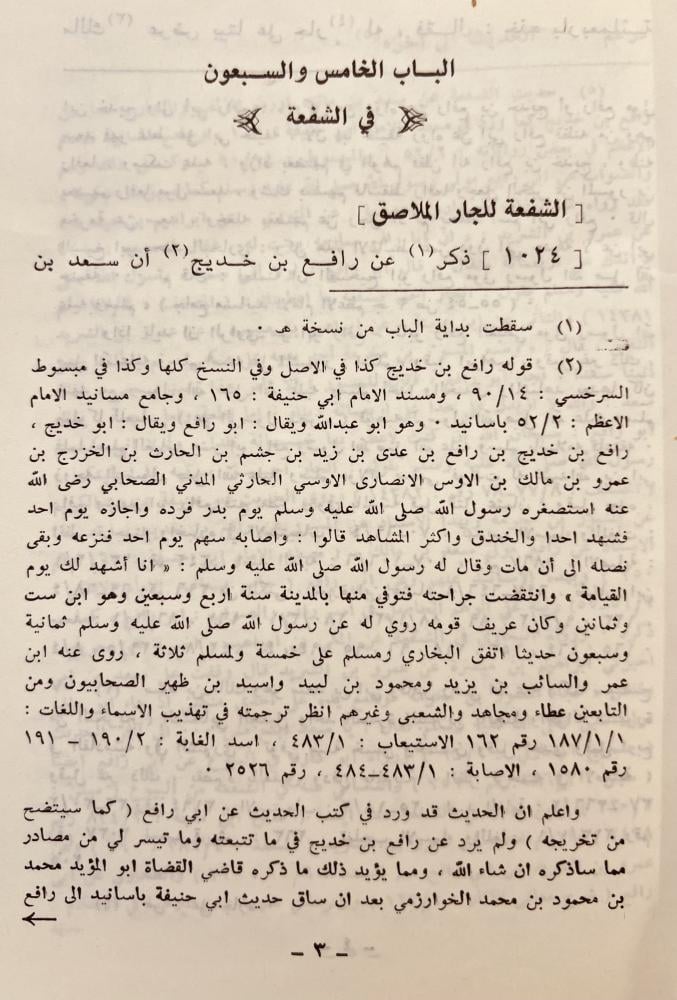 الباب الخامس والسبعون
في الشفعة
[ الشفعة للجار الملاصق ]
[ ١٠٢٤ ] ذكر(١) عن رافع بن خديج(٢) أن سعد بن
(١) سقطت بداية الباب من نسخة هـ ٠
(٢) قوله رافع بن خديج كذا في الاصل وفي النسخ كلها وكذا في مبسوط
السرخسي : ٩٠/١٤ ، ومسند الامام ابي حنيفة : ١٦٥ ، وجامع مسانيد الامام
الاعظم : ٥٢/٢ باسانيد ٠ وهو ابو عبدالله ويقال : ابو رافع ويقال : ابو خديج ،
رافع بن خديج بن رافع بن عدى بن زيد بن جشم بن الحارث بن الخزرج بن
عمرو بن مالك بن الاوس الانصارى الاوسي الحارثي المدني الصحابي رضى الله
عنه استصغره رسول الله صلى الله عليه وسلم يوم بدر فرده واجازه يوم احد
فشهد احدا والخندق واكثر المشاهد قالوا : واصابه سهم يوم احد فنزعه وبقى
نصله الى أن مات وقال له رسول الله صلى الله عليه وسلم : « انا أشهد لك يوم
القيامة » وانتقضت جراحته فتوفي منها بالمدينة سنة اربع وسبعين وهو ابن ست
وثمانين وكان عريف قومه روي له عن رسول الله صلى الله عليه وسلم ثمانية
وسبعون حديثا اتفق البخاري رمسلم على خمسة ولمسلم ثلاثة ، روى عنه ابن
عمر والسائب بن يزيد ومحمود بن لبيد واسيد بن ظهير الصحابيون ومن
التابعين عطاء ومجاهد والشعبى وغيرهم انظر ترجمته في تهذيب الاسماء واللغات :
١٨٧/١/١ رقم ١٦٢ الاستيعاب : ٤٨٣/١ ، اسد الغابة : ١٩٠/٢ – ١٩١
رقم ١٥٨٠ ، الاصابة : ٤٨٣/١–٤٨٤ ، رقم ٢٥٢٦ ٠
واعلم ان الحديث قد ورد في كتب الحديث عن ابي رافع ( كما سيتضح
من تخريجه ) ولم يرد عن رافع بن خديج في ما تتبعته وما تيسر لي من مصادر
مما ساذكره ان شاء الله ، ومما يؤيد ذلك ما ذكره قاضي القضاة ابو المؤيد محمد
بن محمود بن محمد الخوارزمي بعد ان ساق حديث ابي حنيفة باسانيد الى رافع
– ٣ –